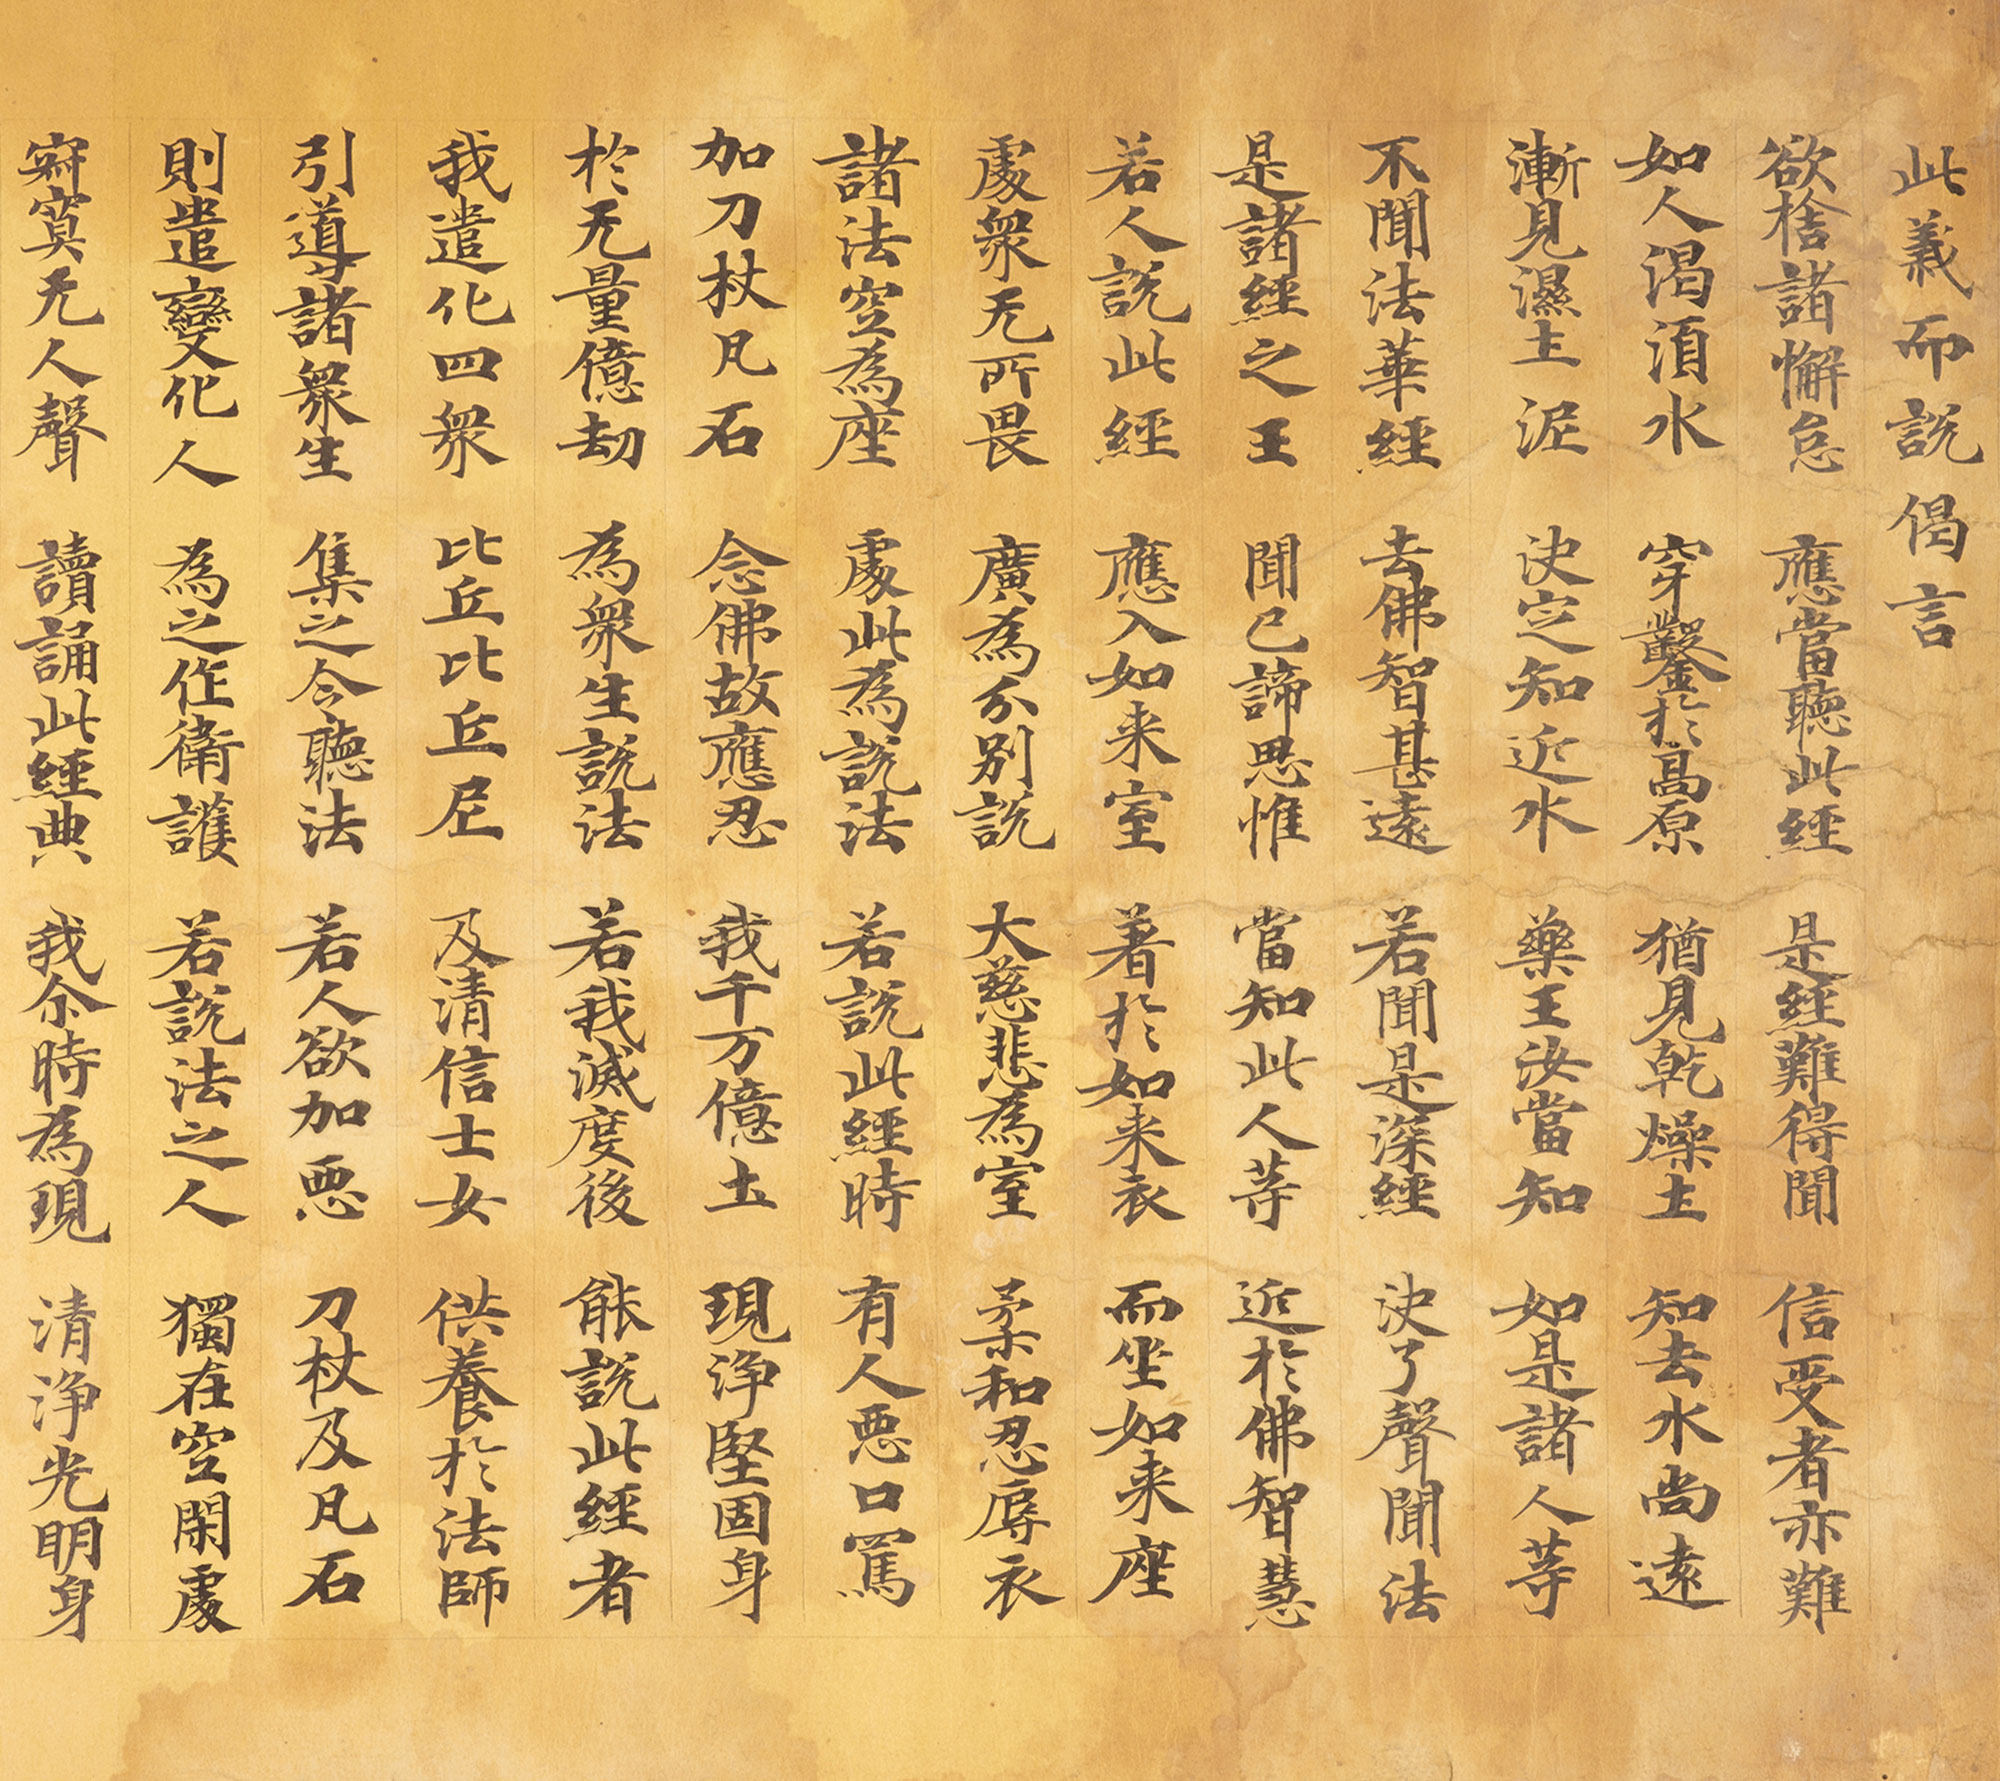 此義而說偈言
欲捨諸懈怠 應當聽此經 是經難得聞 信受者亦難
如人渴湏水 穿鑿於高原 猶見乾燥土 知去水尚遠
漸見濕土泥 決定知近水 藥王汝當知 如是諸人等
不聞法華經 去佛智甚遠 若聞是深經 決了聲聞法
是諸經之王 聞已諦思惟 當知此人等 近於佛智慧
若人説此經 應入如来室 著於如来衣 而坐如来座
處衆无所畏 廣為分別説 大慈悲為室 柔和忍辱衣
諸法空為座 處此為説法 若説此經時 有人惡口罵
加刀杖凡石 念佛故應忍 我千万億土 現浄堅固身
於无量億劫 為衆生説法 若我滅度後 能説此經者
我遣化四衆 比丘比丘尼 及清信士女 供養於法師
引導諸衆生 集之令聽法 若人欲加惡 刀杖及凡石
則遣變化人 為之作衛護 若説法之人 獨在空閑處
寂寞无人聲 讀誦此經典 我尒時為現 清浄光明身